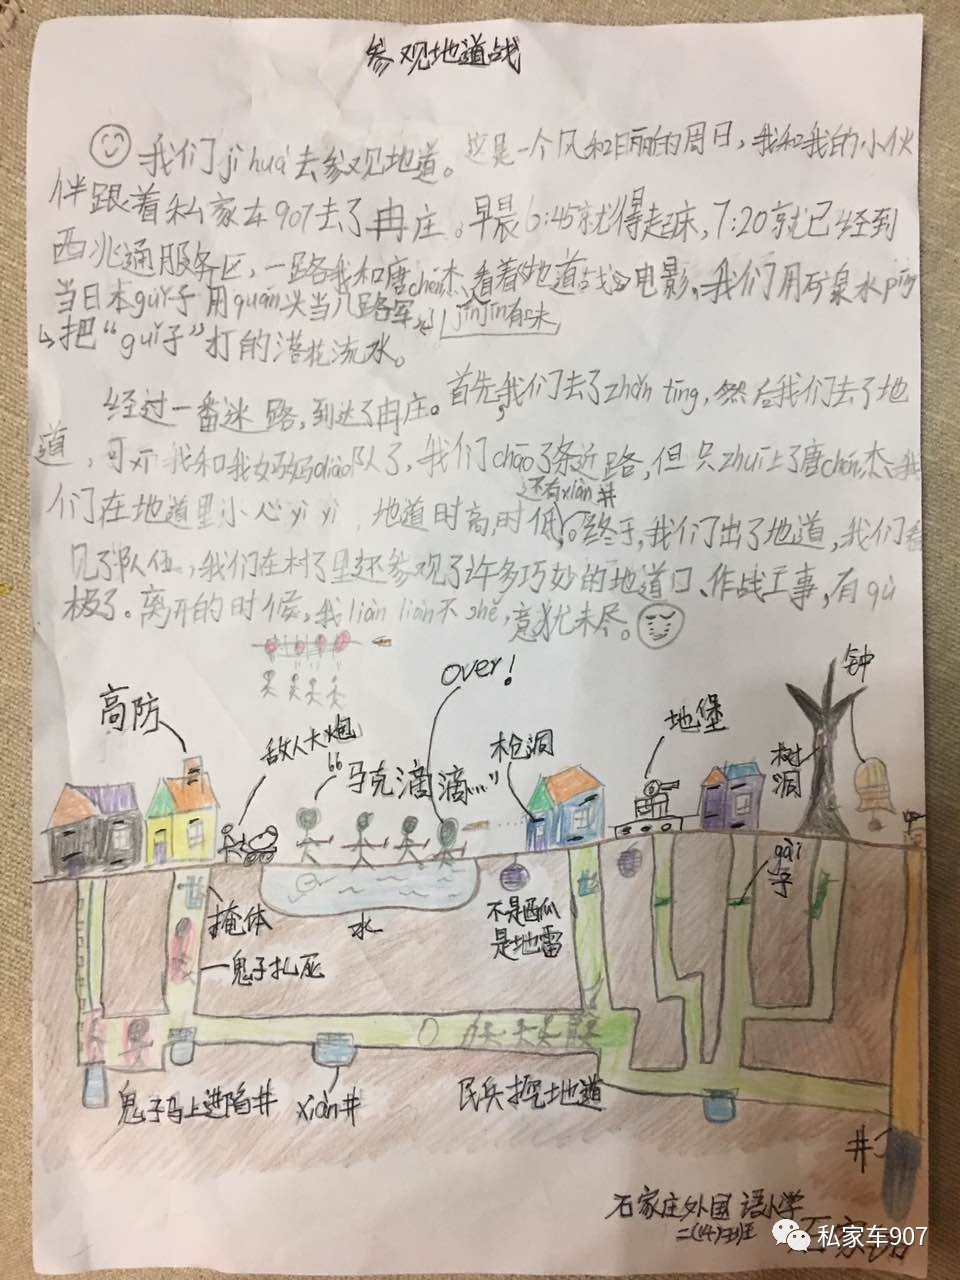 参观地道战
我们jì huà去参观地道。这是一个风和日丽的周日，我和我的小伙
伴跟着私家车907去了冉庄。早晨6:45就得起床，7:20就已经到
西兆通服务区，一路我和唐chén杰看着《地道战》电影，我们用矿泉水píng
当日本guǐ子用quán头当八路军 jīn jīn有味
把“guǐ子”打的落花流水。
经过一番迷路，到达了冉庄。首先，我们去了zhǎn tīng，然后我们去了地
道，可xī我和我妈妈diào队了，我们chāo了条近路，但只zhuī上了唐chén杰、我
还有xiàn井
们在地道里小心yì yì，地道时高，时低。终于，我们出了地道，我们看
见了队伍，我们在村子里还参观了许多巧妙的地道口、作战工事，有qù
极了。离开的时候，我liàn liàn不shě，意犹未尽。
over！
钟
高防
地堡
敌人大炮
枪洞
树洞
66
马克滴滴……”
gài子
掩体
水
不是西瓜
是地雷
一鬼子扎死
鬼子马上进陷井
xiàn井
民兵挖地道
井
石家庄外国语小学
二(14)班
私家车907